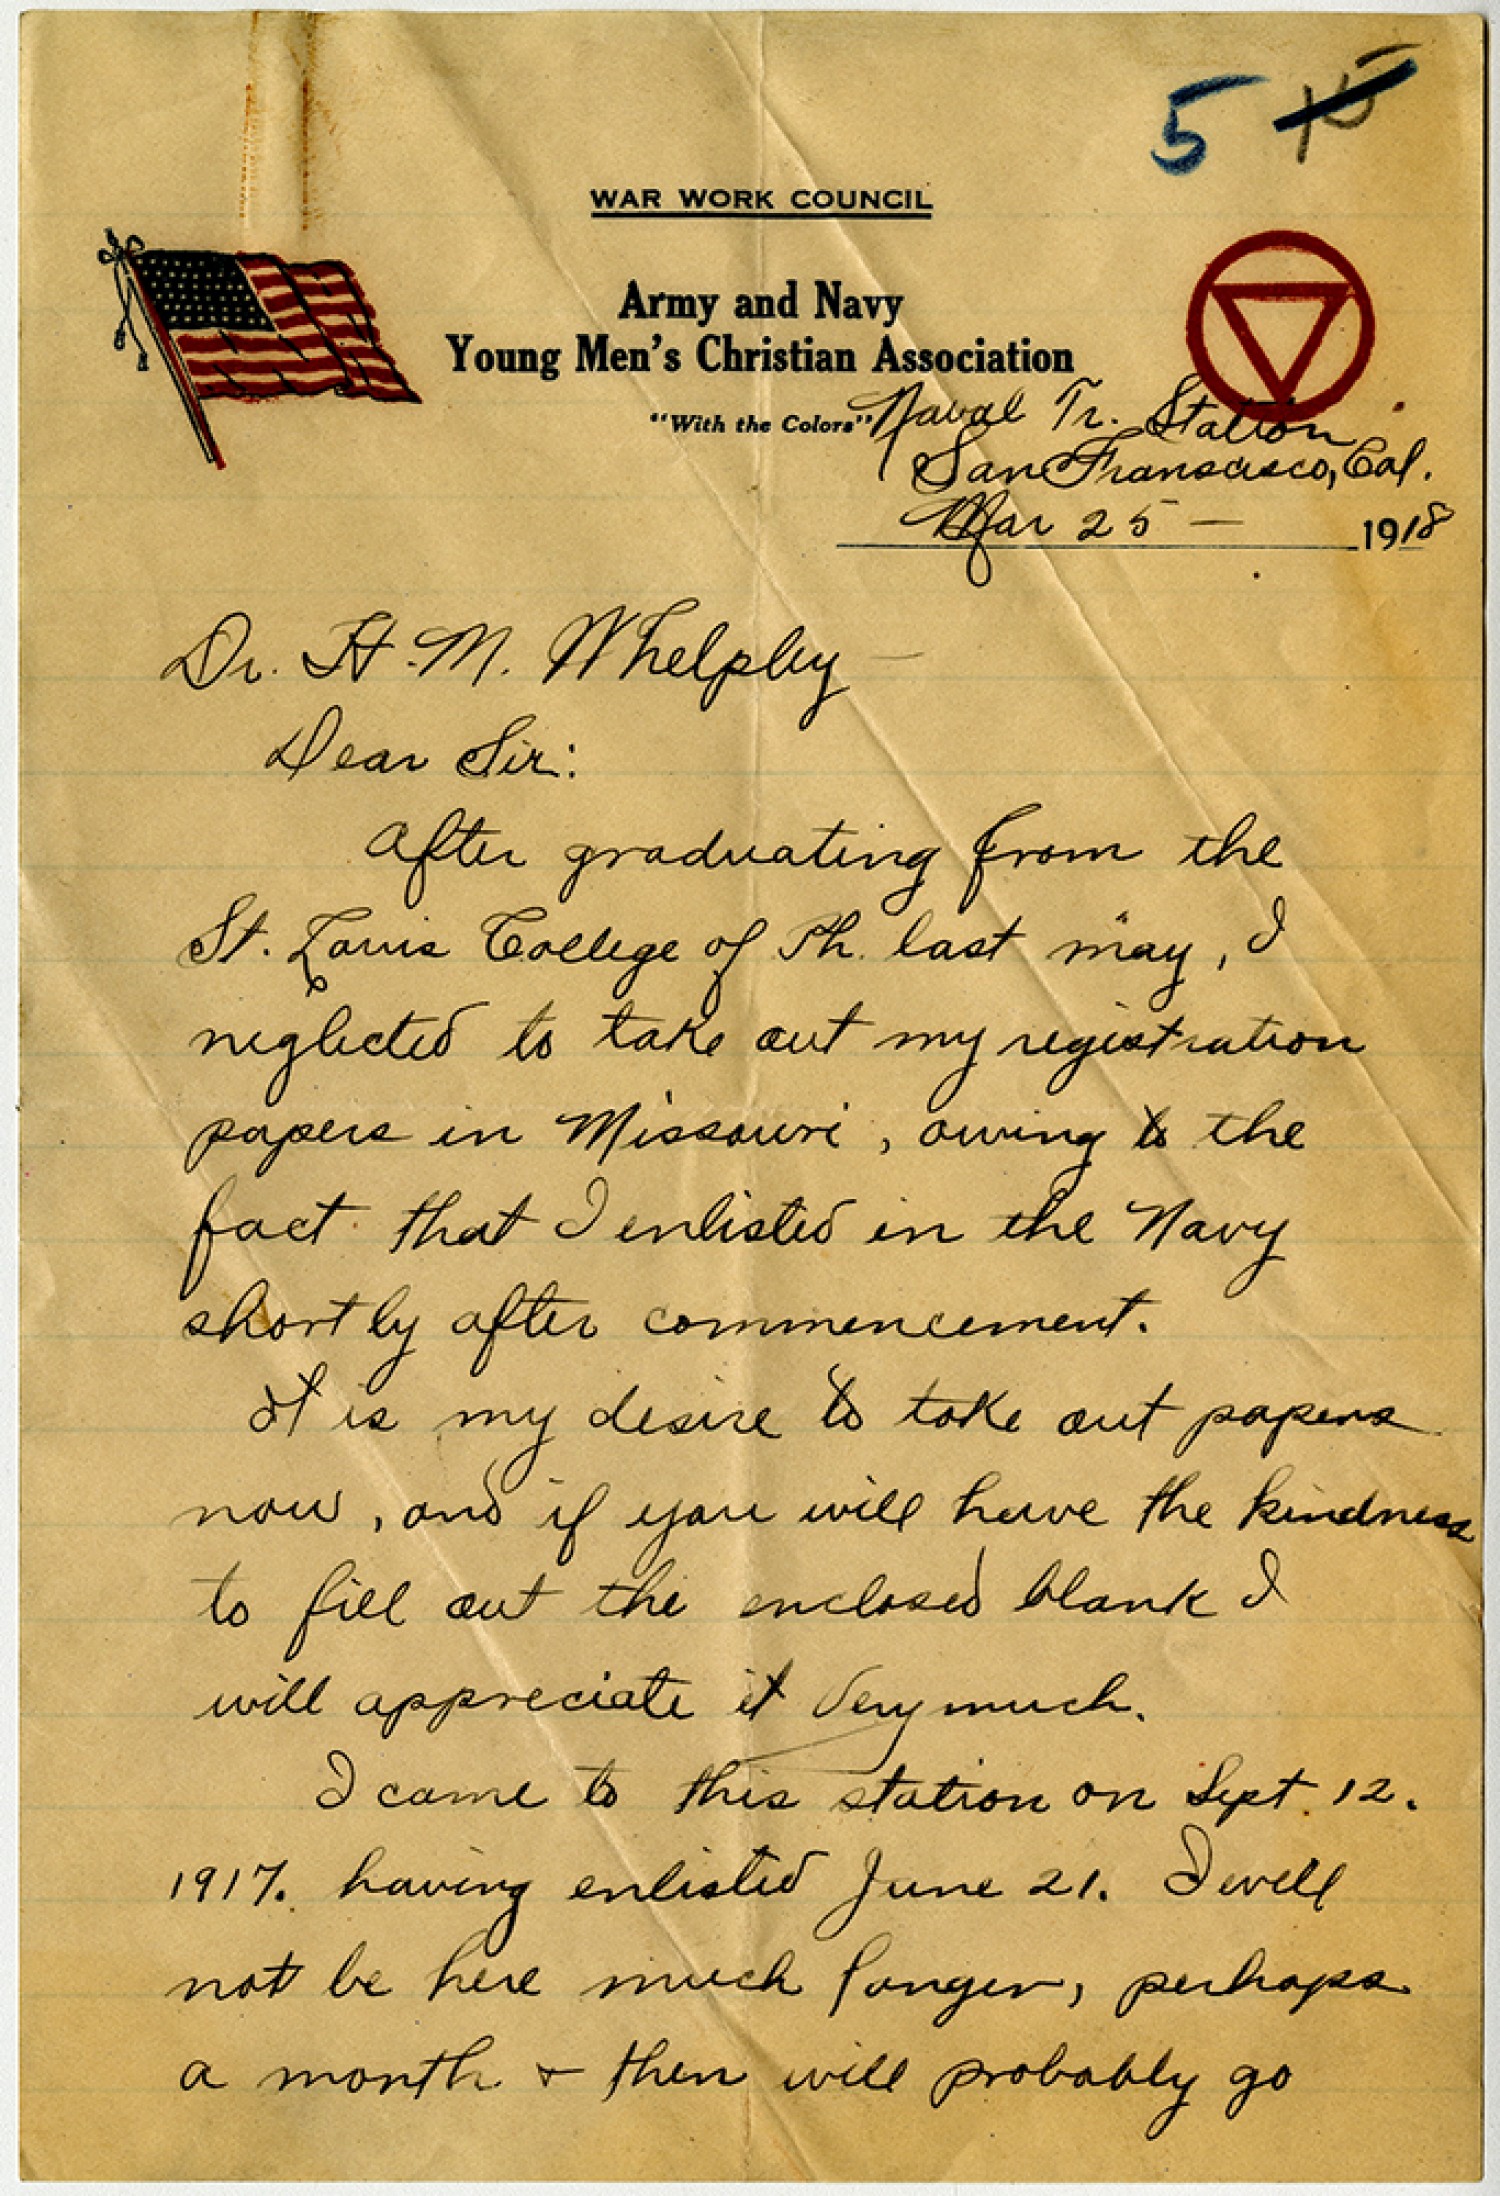 5 15
WAR WORK COUNCIL
Army and Navy
Young Men's Christian Association
"With the Colors"
Naval Tr. Station
San Francisco, Cal.
Mar 25 — 1918
Dr. H. M. Whelpley —
Dear Sir:
After graduating from the
St. Louis College of Ph. last May, I
neglected to take out my registration
papers in Missouri, owing to the
fact that I enlisted in the Navy
shortly after commencement.
It is my desire to take out papers
now, and if you will have the kindness
to fill out the enclosed blank I
will appreciate it very much.
I came to this station on Sept. 12.
1917. having enlisted June 21. I will
not be here much longer, perhaps
a month & then will probably go